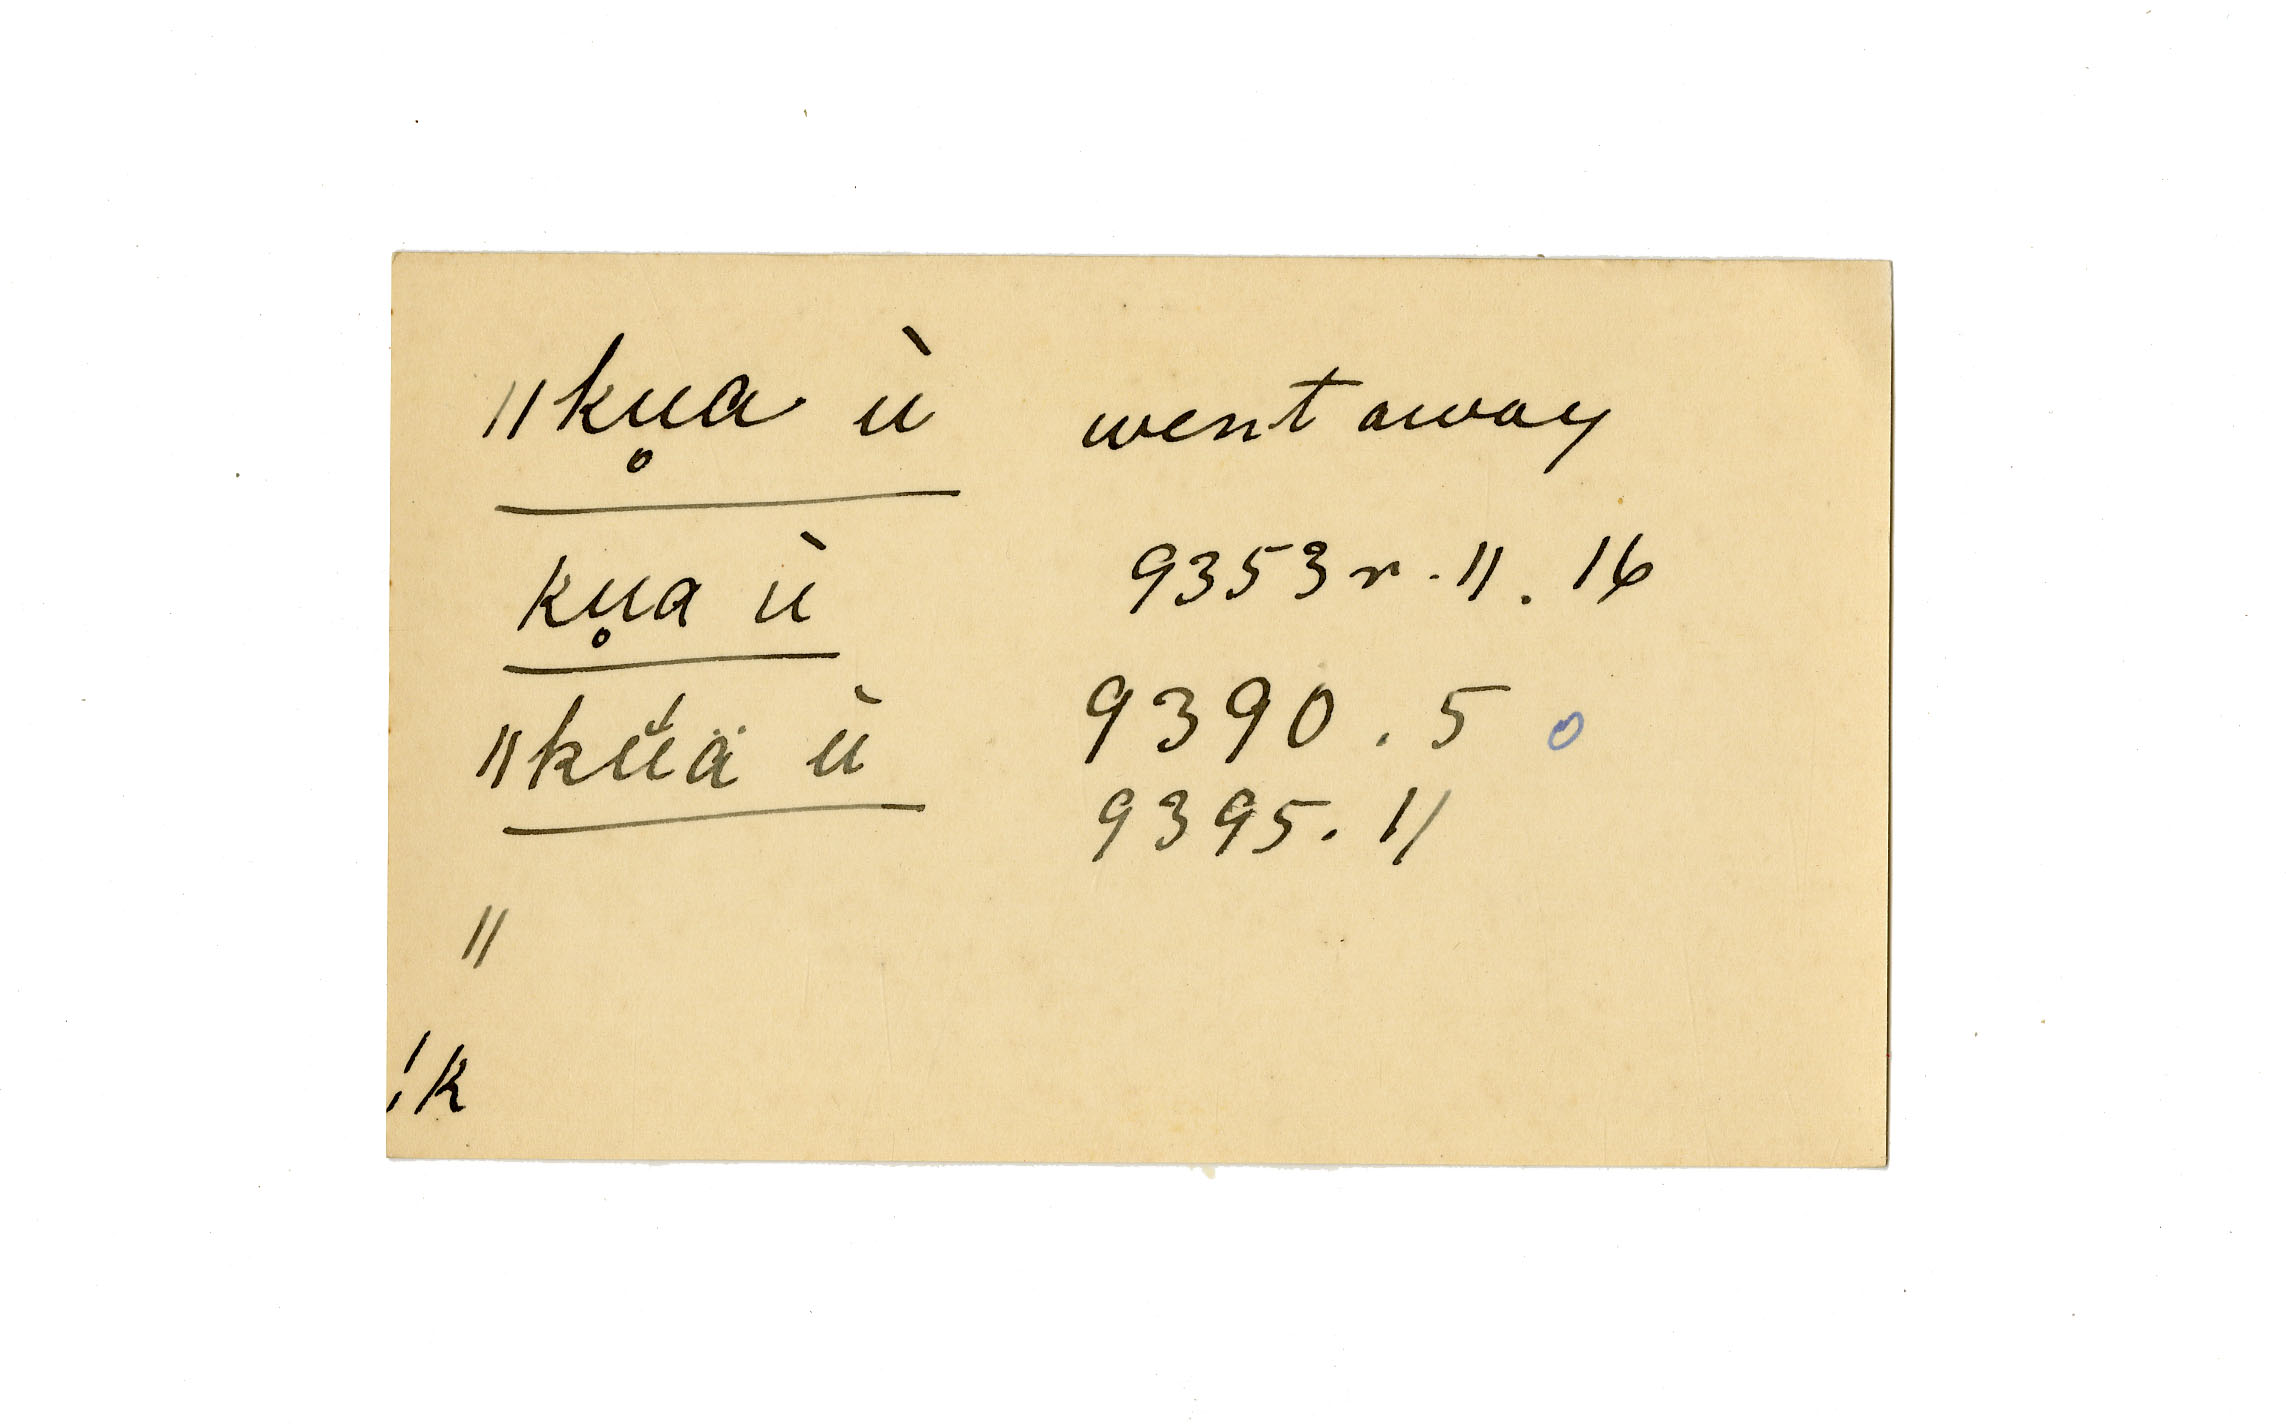 ǁku̥a ù went away
ku̥a ù 9353r. 11. 16
ǁkŭ́ä ù 9390. 5 o
9395. 11
ǁ
!k